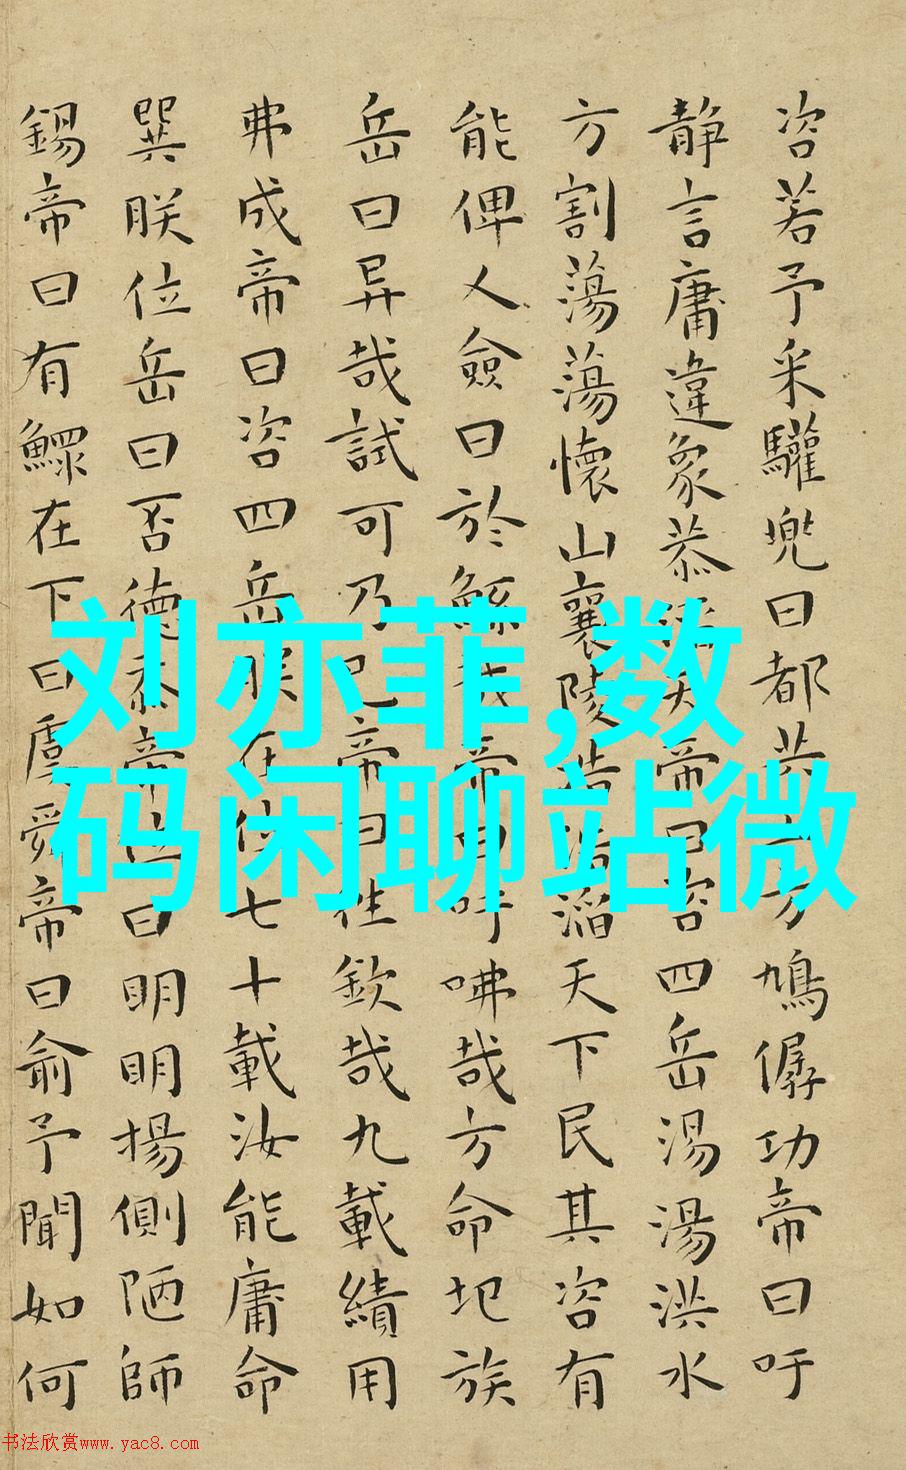 咨若予采驩兜曰都共工方鳩僝功帝曰吁
靜言庸違象恭滔天帝曰咨四岳湯湯洪水
方割蕩蕩懷山襄陵浩浩滔天下民其咨有
能俾乂僉曰於鯀哉帝曰吁咈哉方命圮族
岳曰异哉試可乃已帝曰往欽哉九載績用
弗成帝曰咨四岳朕在位七十載汝能庸命
巽朕位岳曰否德忝帝位曰明明揚側陋師
錫帝曰有鰥在下曰虞舜帝曰俞予聞如何
刘亦菲,数
码闲聊站微
书法欣赏www.yac8.com